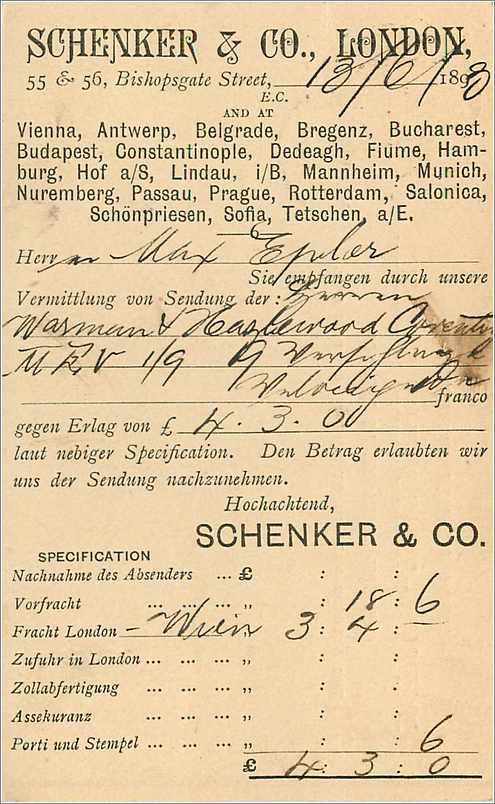 SCHENKER & CO., LONDON,
55 & 56, Bishopsgate Street, 13/6/1893
E.C.
AND AT
Vienna, Antwerp, Belgrade, Bregenz, Bucharest,
Budapest, Constantinople, Dedeagh, Fiume, Ham-
burg, Hof a/S, Lindau, i/B, Mannheim, Munich,
Nuremberg, Passau, Prague, Rotterdam, Salonica,
Schönpriesen, Sofia, Tetschen, a/E.
Herrn Max
Sie empfangen durch unsere
Vermittlung von Sendung der: Herren
Warman & Hazlewood Coventry
1/9 9
franco
gegen Erlag von £ 4.3.0
laut nebiger Specification. Den Betrag erlaubten wir
uns der Sendung nachzunehmen.
Hochachtend,
SCHENKER & CO.
SPECIFICATION
Nachnahme des Absenders ... £ : :
Vorfracht ... ... ... „ : 18 : 6
Fracht London – Wien „ 3 : 4 : –
Zufuhr in London ... ... ... „ : :
Zollabfertigung ... ... ... „ : :
Assekuranz ... ... ... „ : :
Porti und Stempel ... ... ... „ 6
£ 4 : 3 : 0